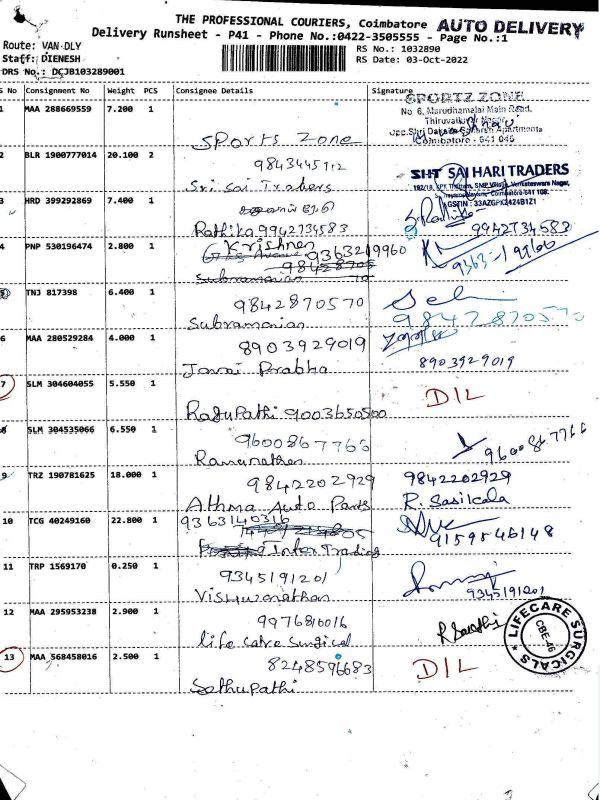 THE PROFESSIONAL COURIERS, Coimbatore AUTO DELIVERY
Delivery Runsheet - P41 - Phone No.:0422-3505555 - Page No.:1
Route: VAN DLY
RS No.: 1032890
Staff: DIENESH
RS Date: 03-Oct-2022
DRS No.: DCJB103289001
S No Consignment No Weight PCS Consignee Details Signature
1 MAA 288669559 7.200 1
SPORTZ ZONE
No 6, Marudhamalai Main Road,
Thiruvalluvar Nagar,
Coimbatore - 641 046
Sports Zone
2 BLR 1900777014 20.100 2
Sri Sai Traders
SHT SAI HARI TRADERS
GSTIN : 33AZGPK2424B1Z1
3 HRD 399292869 7.400 1
Rathika 9942734583
9942734583
4 PNP 530196474 2.800 1
Krishnan
9363219960
5 TNJ 817398 6.400 1
9842870570
Subramanian
9842870570
6 MAA 280529284 4.000 1
8903929019
Prabha
8903929019
7 SLM 304604055 5.550 1
Ragupathi 9003650500
D/L
8 SLM 304535066 6.550 1
9600867766
Ramanathan
9600867766
9 TRZ 190781625 18.000 1
9842202929
Athma Auto Parts
9842202929
R. Sasikala
10 TCG 40249160 22.800 1
9363140316
Inter Trading
9159546148
11 TRP 1569170 0.250 1
9345191201
Vishwanathan
9345191201
12 MAA 295953238 2.900 1
9976810016
life care Surgical
LIFECARE SURGICALS
CBE-46
13 MAA 568458016 2.500 1
8248596683
Sethupathi
D/L